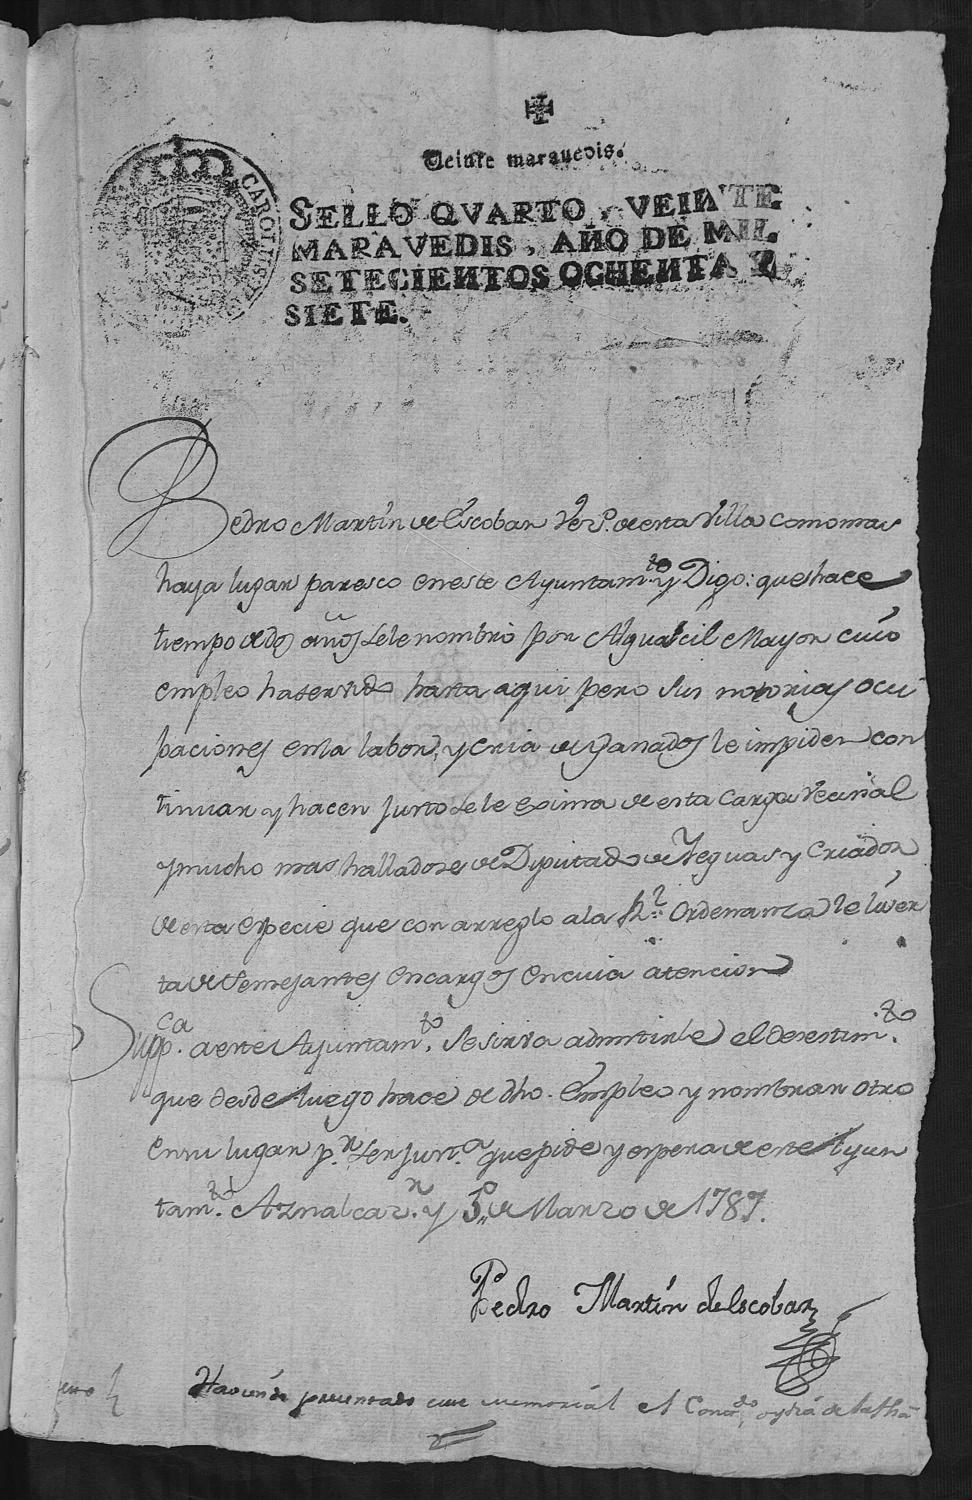 Veinte marauedis.
SELLO QVARTO, VEINTE
MARAVEDIS, AÑO DE MIL
SETECIENTOS OCHENTA Y
SIETE.
CAROLUS
Pedro Martin de Escobar Vez.º de esta Villa como mas
haya lugar paresco en este Ayuntam.to y Digo: que hace
tiempo de dos años se le nombró por Alguacil Mayor cuio
empleo ha servido hasta aqui pero sus notorias ocu
paciones en la labor, y cria de Ganados le impiden con
tinuar y hacen justo se le exima de esta Carga Vecinal
y mucho mas hallandose de Diputado de Yeguas y Criador
de esta especie que con arreglo a la Rl. Ordenanza le liver
ta de Semejantes encargos en cuia atencion
Supp.ca a este Ayuntam.to se sirva admitirle el desestim.to
que desde luego hace de dho. Empleo y nombrar otro
en su lugar p.r ser just.a que pide y espera de este Ayun
tam.to Aznalcaz.r y 5 de Marzo de 1787.
Pedro Martin de Escobar
Haviendo presentado este memorial Al Conc. oy dia de la fha